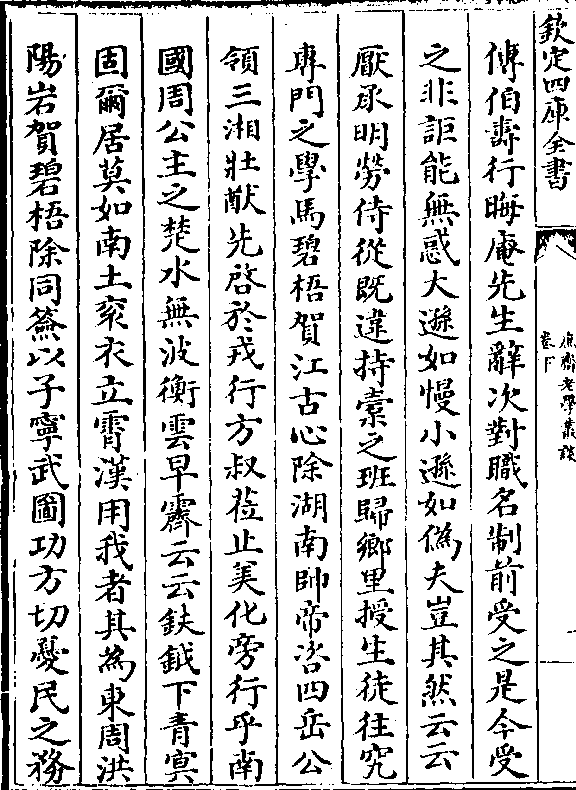 欽定四庫全書
庶齋老學叢談
卷下
傅伯壽行晦庵先生辭次對職名制前受之是今受
之非詎能無惑大遜如慢小遜如偽夫豈其然云云
厭承明勞侍從既違持橐之班歸鄉里授生徒往究
專門之學馬碧梧賀江古心除湖南帥帝咨四岳公
領三湘壯猷先啓於戎行方叔蒞止美化旁行乎南
國周公主之楚水無波衡雲早霽云云鈇鉞下青冥
固爾居莫如南土衮衣立霄漢用我者其為東周洪
陽岩賀碧梧除同簽以子寧武圖功方切憂民之務